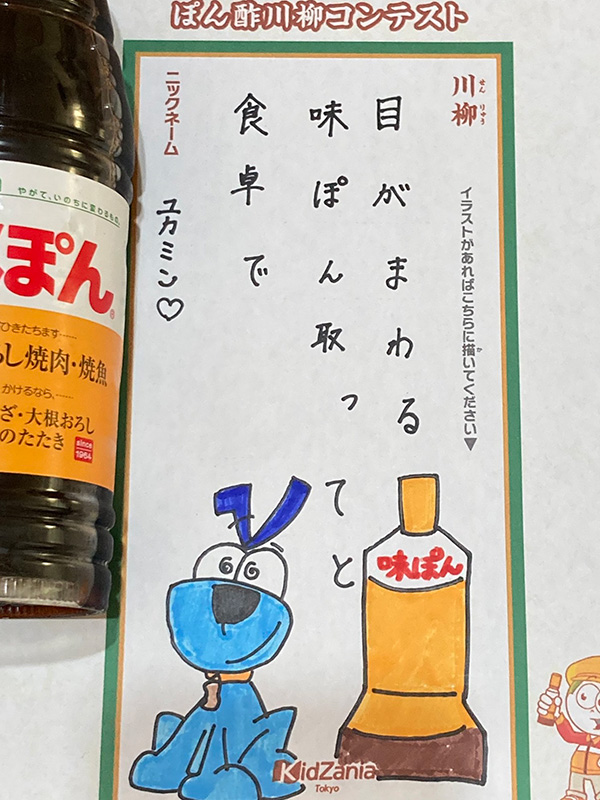 ぽん酢川柳コンテスト
川柳
せんりゅう
イラストがあればこちらに描いてください▼
か
目がまわる
味ぽん取ってと
食卓で
ニックネーム
ユカミン♡
味ぽん
KidZania
Tokyo
やがて、いのちに変わるもの。
ぽん®
ひきたちます……
し焼肉・焼魚
かけるなら、……
ざ・大根おろし
のたたき
since
1964